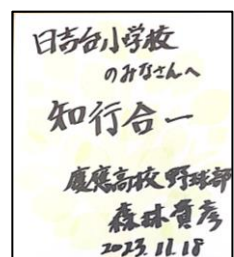 日吉台小学校
のみなさんへ
知行合一
慶應高校野球部
森林貴彦
2023.11.18